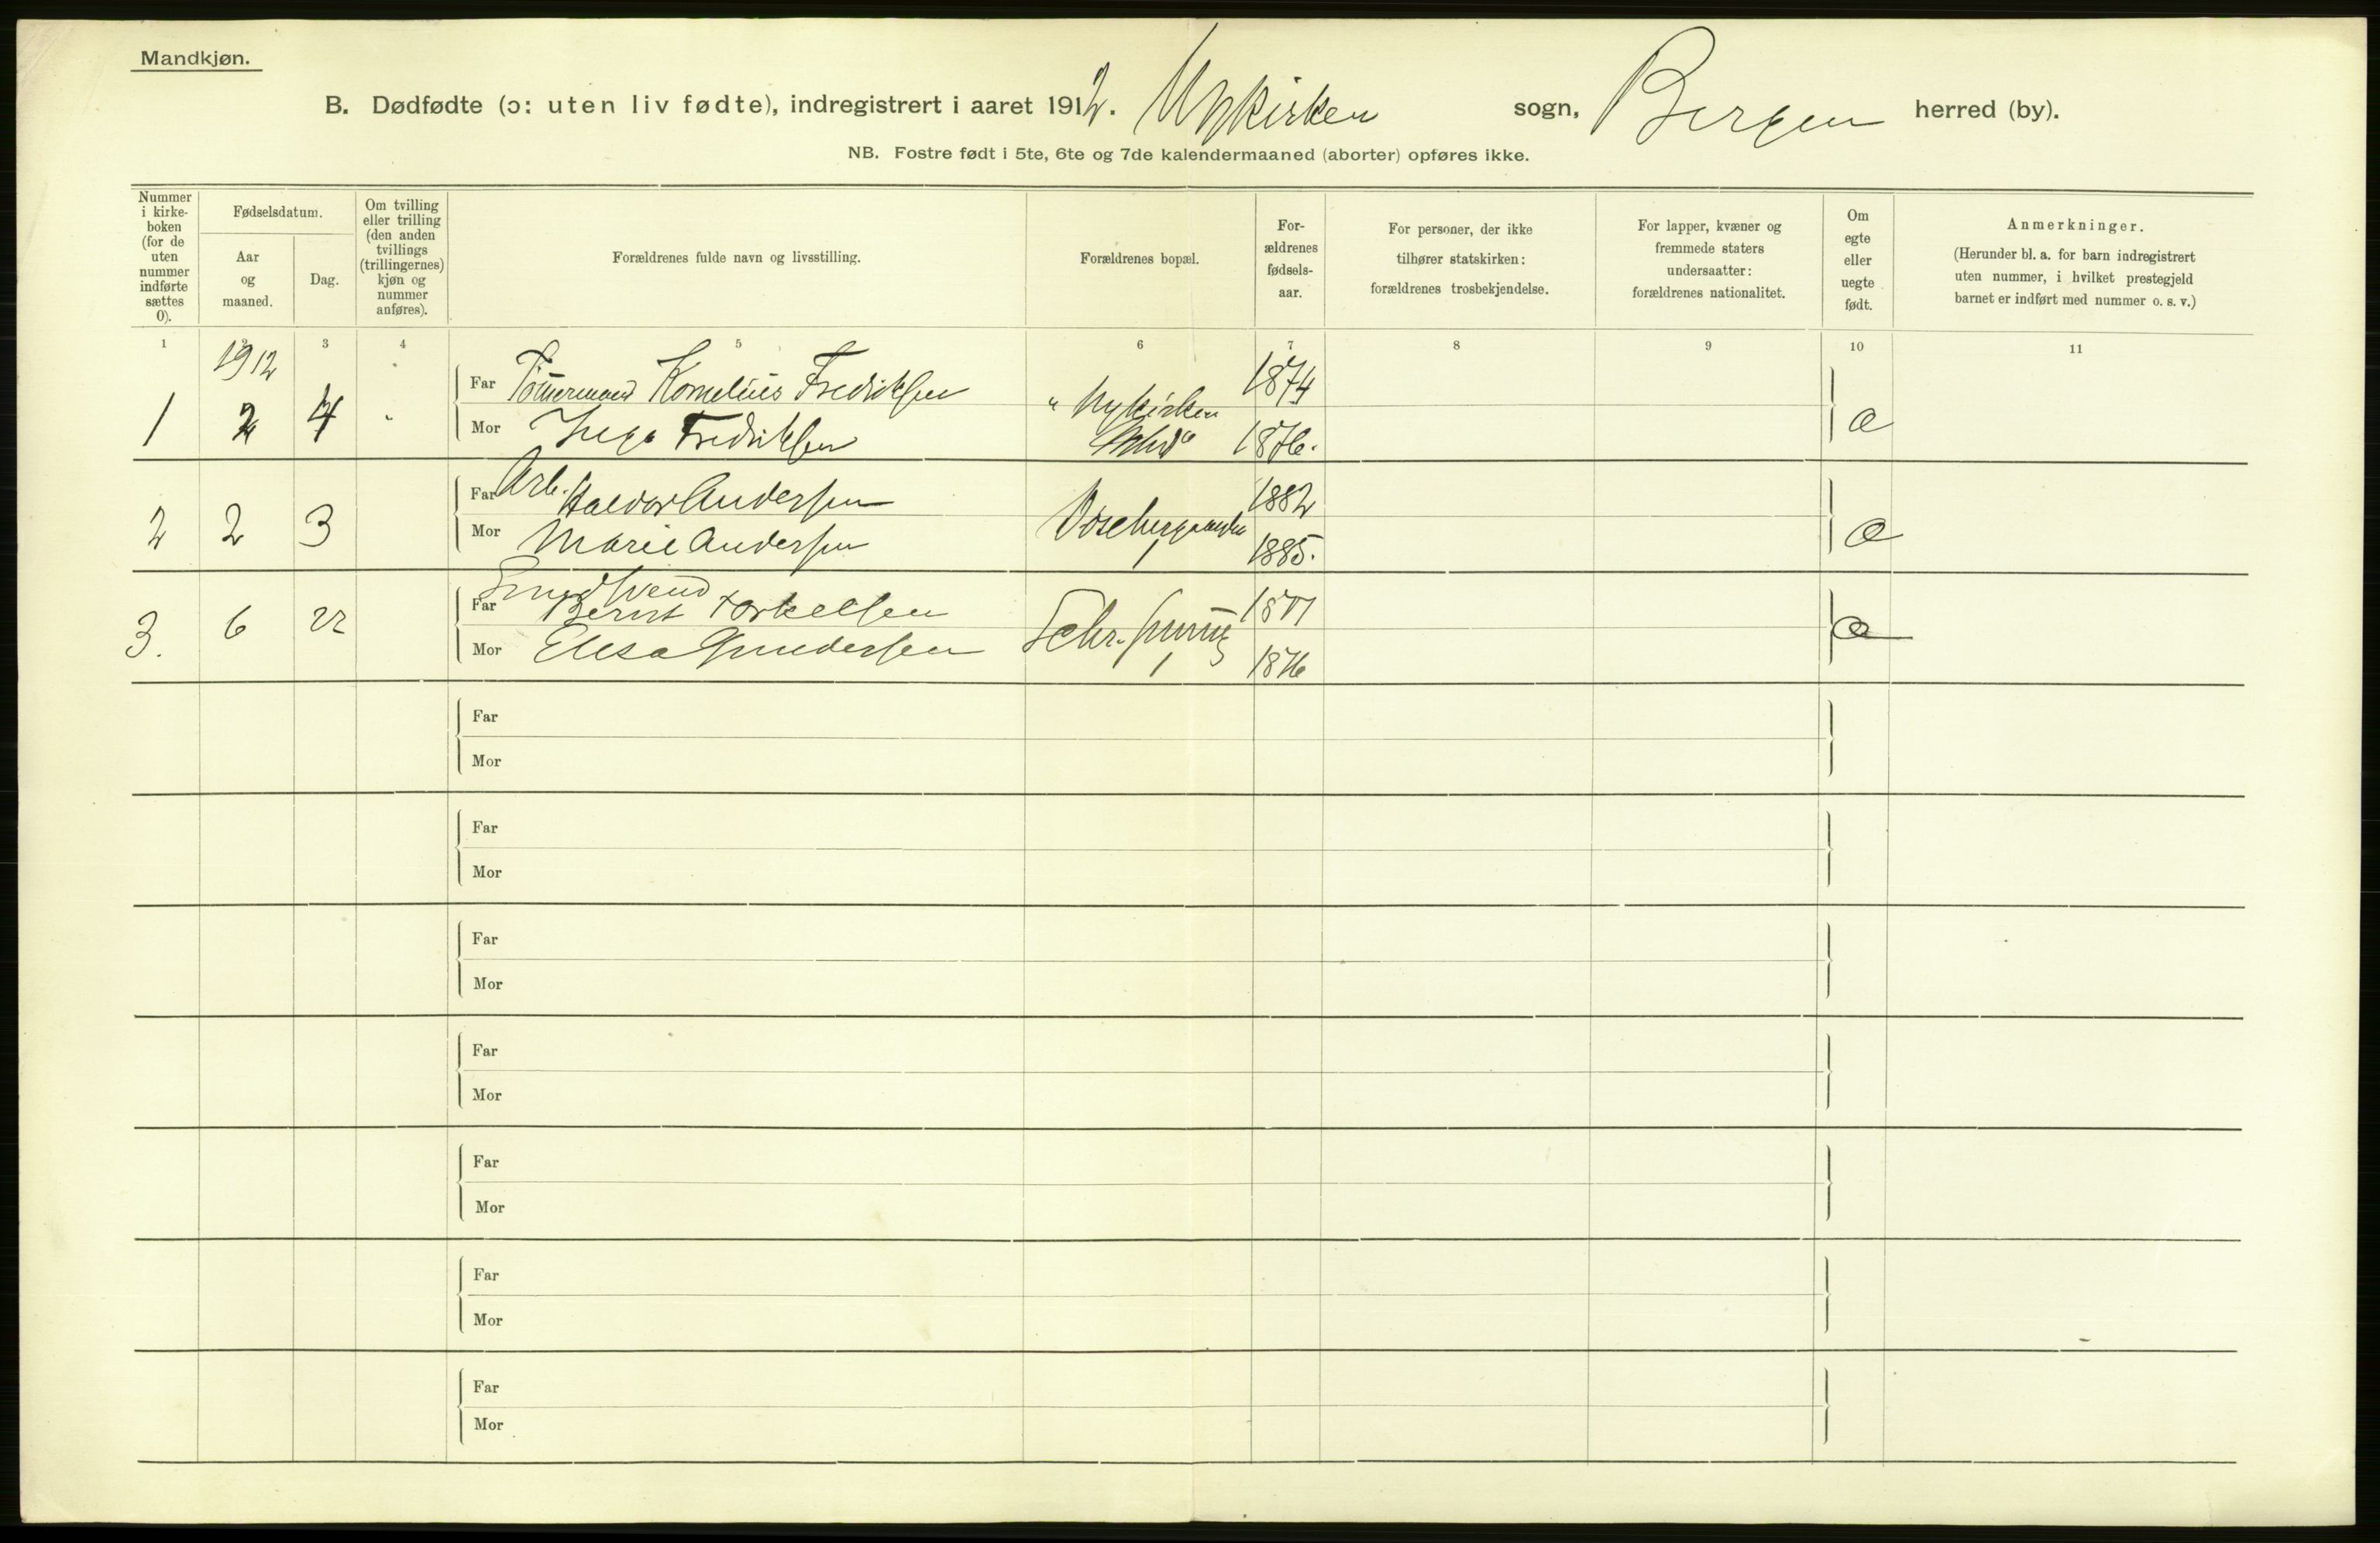 Mandkjøn.
B. Dødfødte (ɔ: uten liv fødte), indregistrert i aaret 1912. Nykirken sogn, Bergen herred (by).
NB. Fostre født i 5te, 6te og 7de kalendermaaned (aborter) opføres ikke.
Nummer i kirke-boken (for de uten nummer indførte sættes 0).
Fødselsdatum.
Aar og maaned.
Dag.
Om tvilling eller trilling (den anden tvillings (trillingernes) kjøn og nummer anføres).
Forældrenes fulde navn og livsstilling.
Forældrenes bopæl.
For-ældrenes fødsels-aar.
For personer, der ikke tilhører statskirken: forældrenes trosbekjendelse.
For lapper, kvæner og fremmede staters undersaatter: forældrenes nationalitet.
Om egte eller uegte født.
Anmerkninger.
(Herunder bl. a. for barn indregistrert uten nummer, i hvilket prestegjeld barnet er indført med nummer o. s. v.)
1 2 3 4 5 6 7 8 9 10 11
1912
1 2 4 Far Tømermand Kornelius Fredriksen Nykirken 1874
Mor Inga Fredriksen 1876. e
2 2 3 Far Arb. Haldor Andersen 1882
Mor Marie Andersen 1885. e
3. 6 22 Far Bernt Torkelsen
Mor Elisa Gundersen 1876 e
Far
Mor
Far
Mor
Far
Mor
Far
Mor
Far
Mor
Far
Mor
Far
Mor